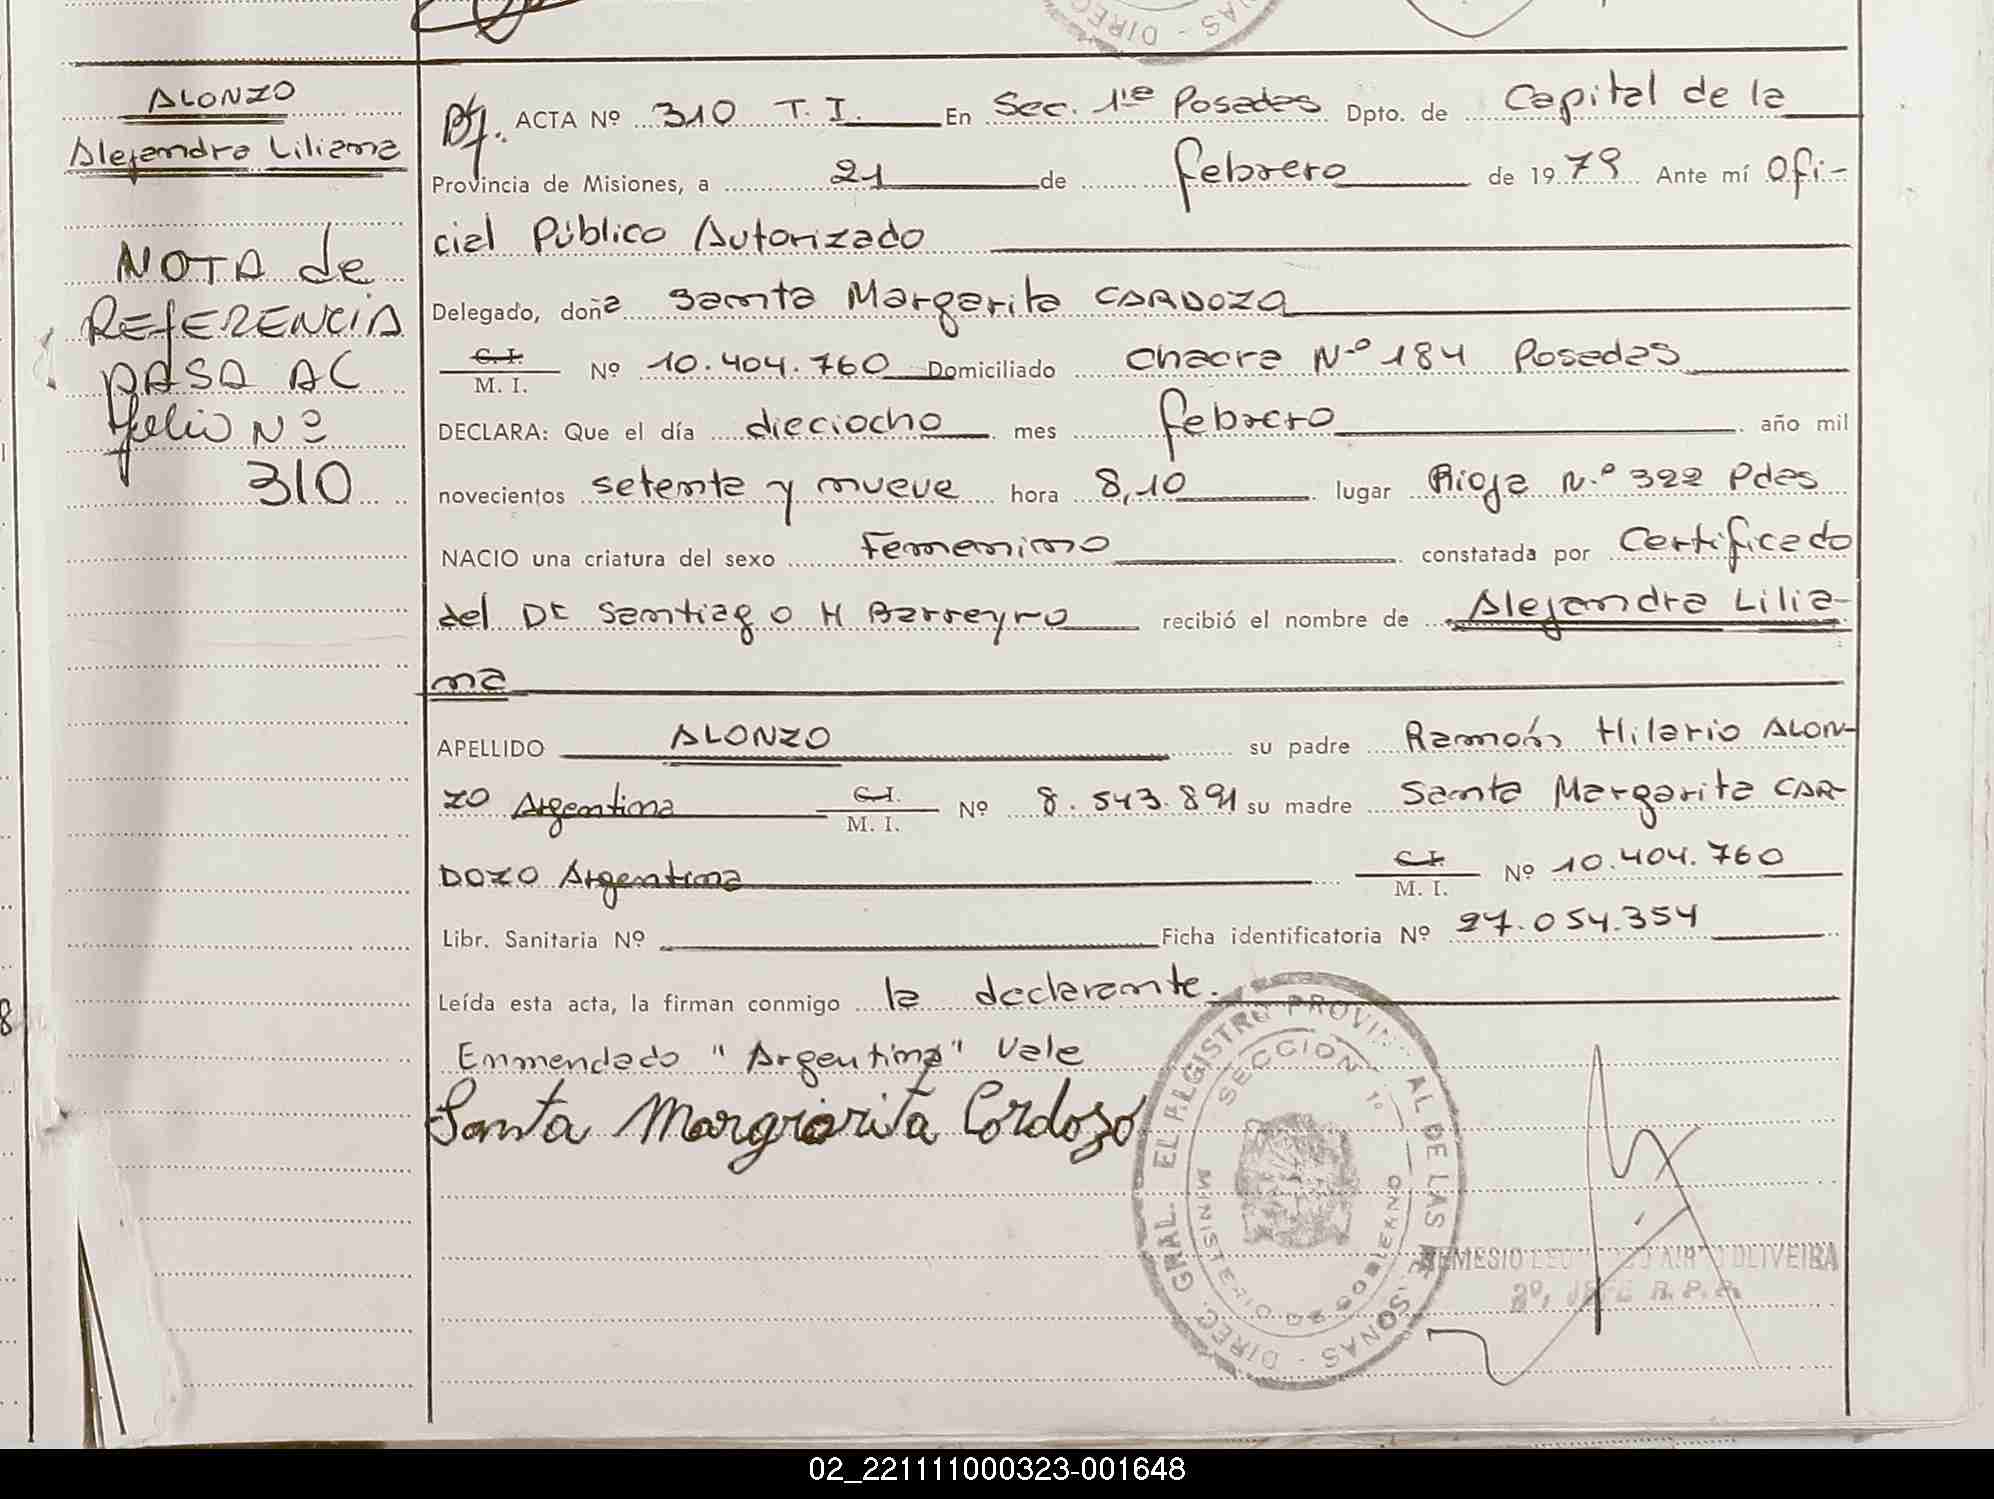 ALONZO
Alejandra Liliana
NOTA de
REfERENCIA
PASA AC
folio Nº
310
ACTA Nº 310 T. I. En Sec. 1ra Posadas Dpto. de Capital de la
Provincia de Misiones, a 21 de febrero de 1979 Ante mí Ofi-
cial Público Autorizado
Delegado, doña Santa Margarita CARDOZO
C. I. / M. I. Nº 10.404.760 Domiciliado Chacra Nº 184 Posadas
DECLARA: Que el día dieciocho mes febrero año mil
novecientos setenta y nueve hora 8,10 lugar Rioja N.º 322 Pdas
NACIO una criatura del sexo Femenino constatada por Certificado
del Dr Santiago H Barreyro recibió el nombre de Alejandra Lilia-
na
APELLIDO ALONZO su padre Ramón Hilario ALON-
ZO Argentina C. I. / M. I. Nº 8.543.891 su madre Santa Margarita CAR-
DOZO Argentina C. I. / M. I. Nº 10.404.760
Libr. Sanitaria Nº Ficha identificatoria Nº 27.054.354
Leída esta acta, la firman conmigo la declarante.
Emmendado "Argentina" Vale
Santa Margarita Cordozo
DIREC. GRAL. EL REGISTRO PROVINCIAL DE LAS PERSONAS
SECCION 1º
MINISTERIO DE GOBIERNO
OLIVEIRA
2º, JEFE R. P. P.
02_221111000323-001648